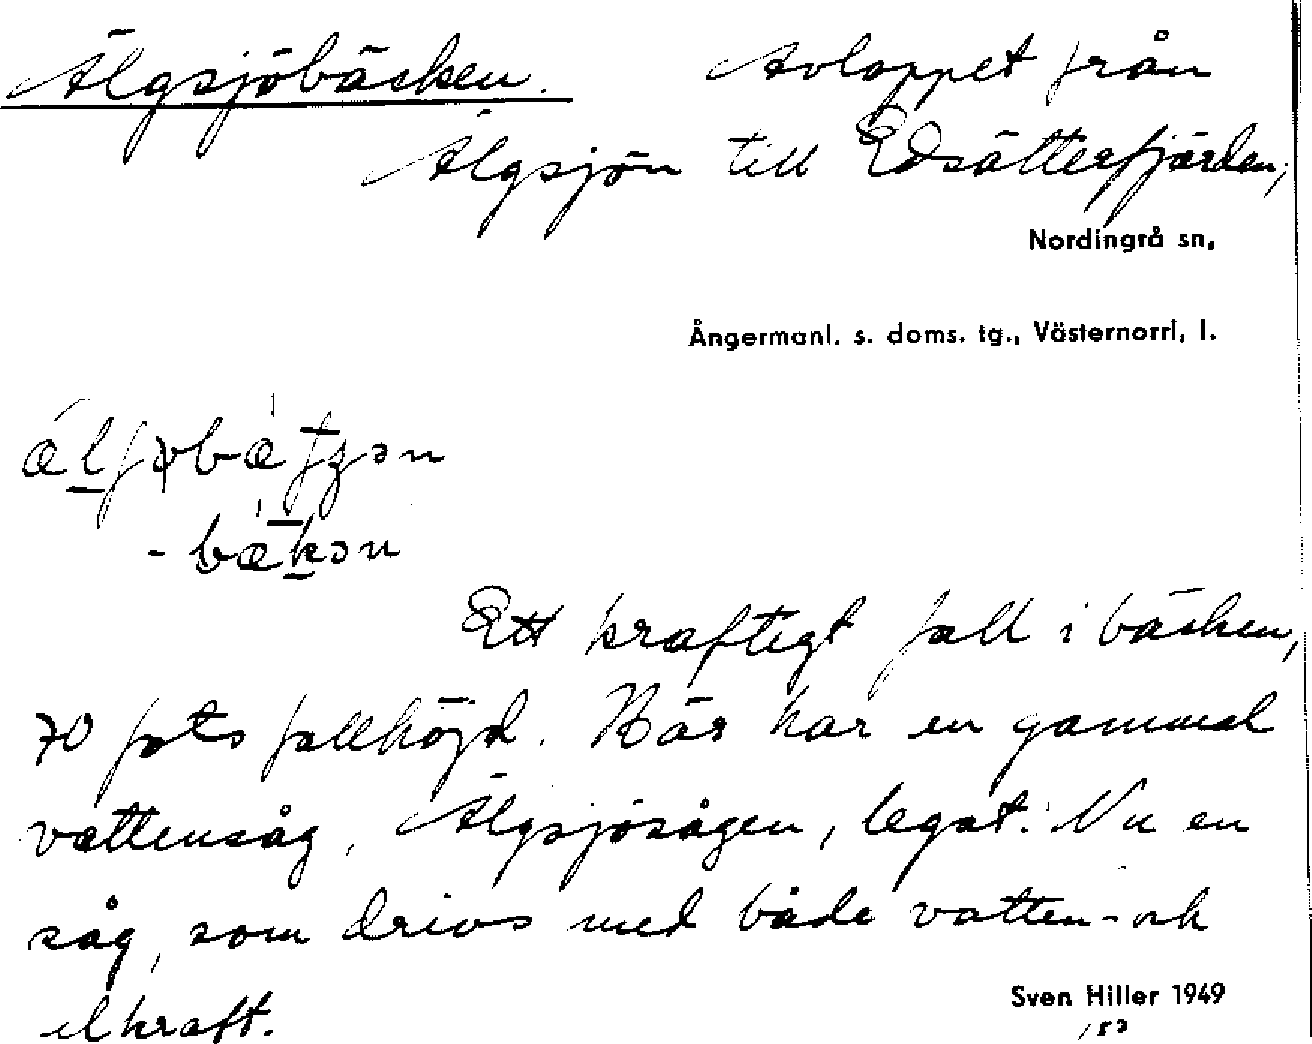 Älgsjöbäcken. Avloppet från
Älgsjön till Edsätterfjärden,
Nordingrå sn,
Ångermanl. s. doms. tg., Västernorrl. l.
Ett kraftigt fall i bäcken,
70 fots fallhöjd. Här har en gammal
vattensåg, Älgsjösågen, legat. Nu en
såg, som drivs med både vatten- och
elkraft.
Sven Hiller 1949